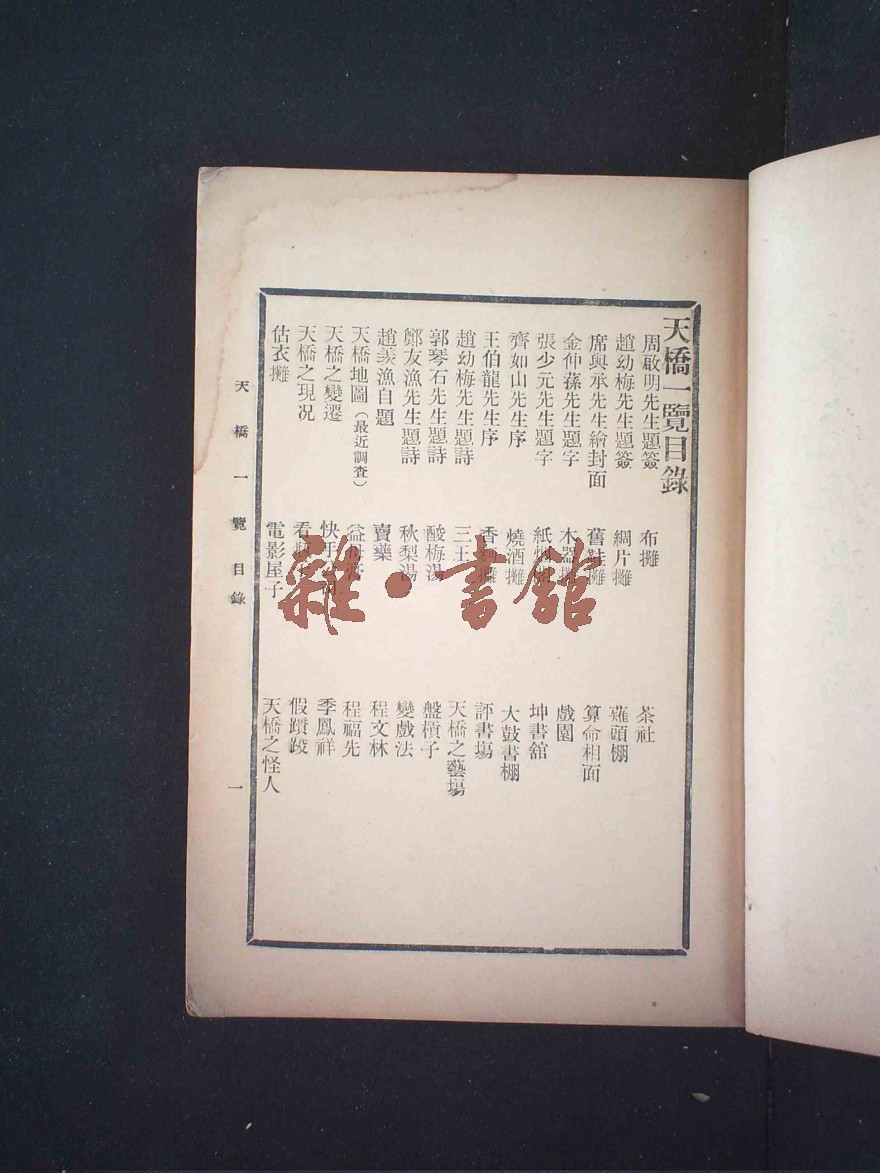 天橋一覽目錄
周啟明先生題簽
趙幼梅先生題簽
席與承先生繪封面
金仲蓀先生題字
張少元先生題字
齊如山先生序
王伯龍先生序
趙幼梅先生題詩
郭琴石先生題詩
鄭友漁先生題詩
趙羨漁自題
天橋地圖(最近調查)
天橋之變遷
天橋之現况
估衣攤
布攤
綢片攤
舊鞋攤
木器攤
紙烟攤
燒酒攤
香攤
三王
酸梅湯
秋梨湯
賣藥
益母膏
快手
看
電影屋子
茶社
薙頭棚
算命相面
戲園
坤書舘
大鼓書棚
評書塲
天橋之藝塲
盤槓子
變戲法
程文林
程福先
季鳳祥
假蹟跤
天橋之怪人
天橋一覽目錄
一
雜·書館